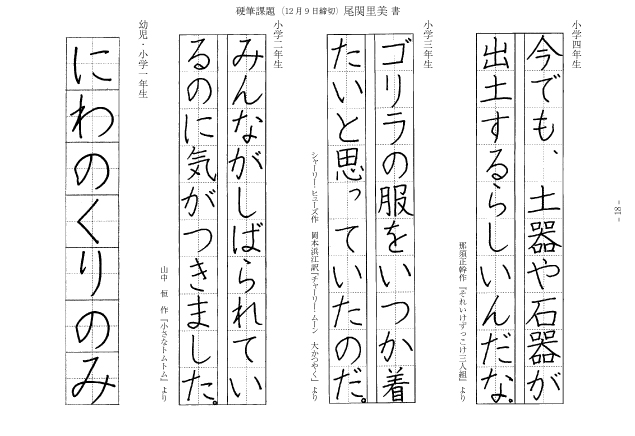 硬筆課題（12月9日締切）尾関里美 書
小学四年生
今でも、土器や石器が
出土するらしいんだな。
那須正幹作『それいけずっこけ三人組』より
小学三年生
ゴリラの服をいつか着
たいと思っていたのだ。
シャーリー・ヒューズ作 岡本浜江訳『チャーリー・ムーン 大かつやく』より
小学二年生
みんながしばられてい
るのに気がつきました。
山中 恒 作『小さなトムトム』より
幼児・小学一年生
にわのくりのみ
- 18 -